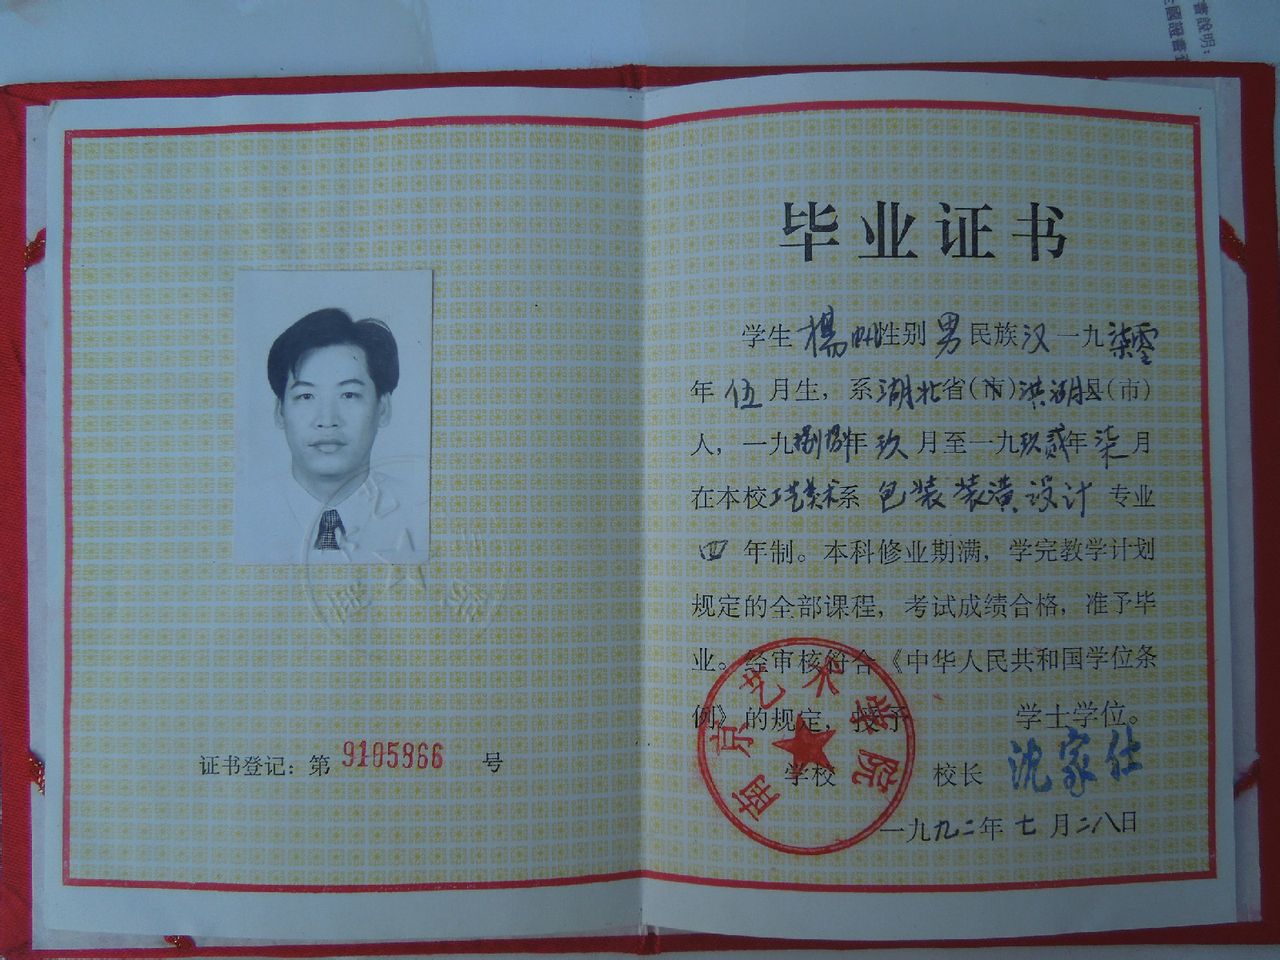 证书登记：第 9105866 号
毕业证书
学生 楊 性别 男 民族 汉 一九柒零
年 伍 月生，系 湖北 省（市）洪湖县（市）
人，一九捌捌年 玖 月至一九玖贰年 柒 月
在本校工艺美术系 包装装潢设计 专业
四 年制。本科修业期满，学完教学计划
规定的全部课程，考试成绩合格，准予毕
业。经审核符合《中华人民共和国学位条
例》的规定，授予 学士学位。
学校 校长 沈家仕
一九九二年 七 月二八日
南京艺术学院